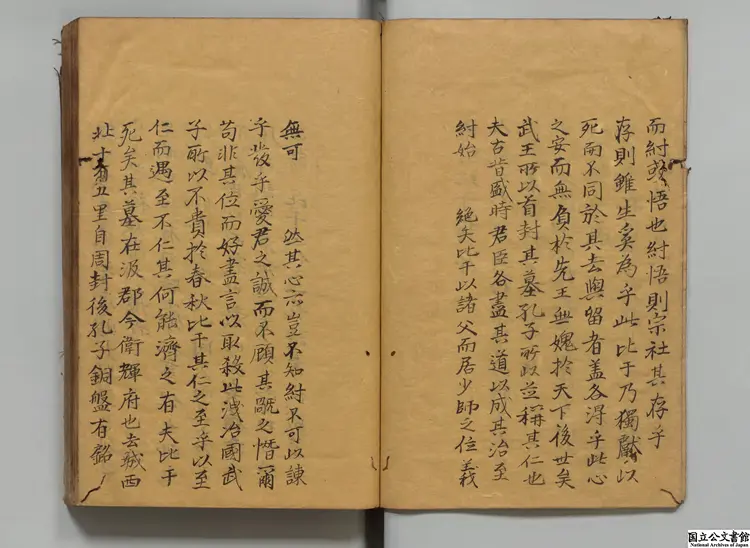 而紂或悟也紂悟則宗社其存乎
存則雖生奚為乎此比干乃獨獻以
死而不同於其去與留者盖各淂乎此心
之安而無負於先王無媿於天下後世矣
武王所以首封其墓孔子所以並稱其仁也
夫古昔盛時君臣各盡其道以成其治至
紂始 絶矣比干以諸父而居少師之位義
無可 然其心亦豈不知紂不可以諫
乎發乎愛君之誠而不顧其戮之憯爾
苟非其位而好盡言以取殺此洩冶國武
子所以不貴於春秋比干其仁之至乎以至
仁而遇至不仁其何能濟之有夫比干
死矣其墓在汲郡今衛輝府也去城西
北十有五里自周封後孔子銅盤有銘
国立公文書館
National Archives of Japan